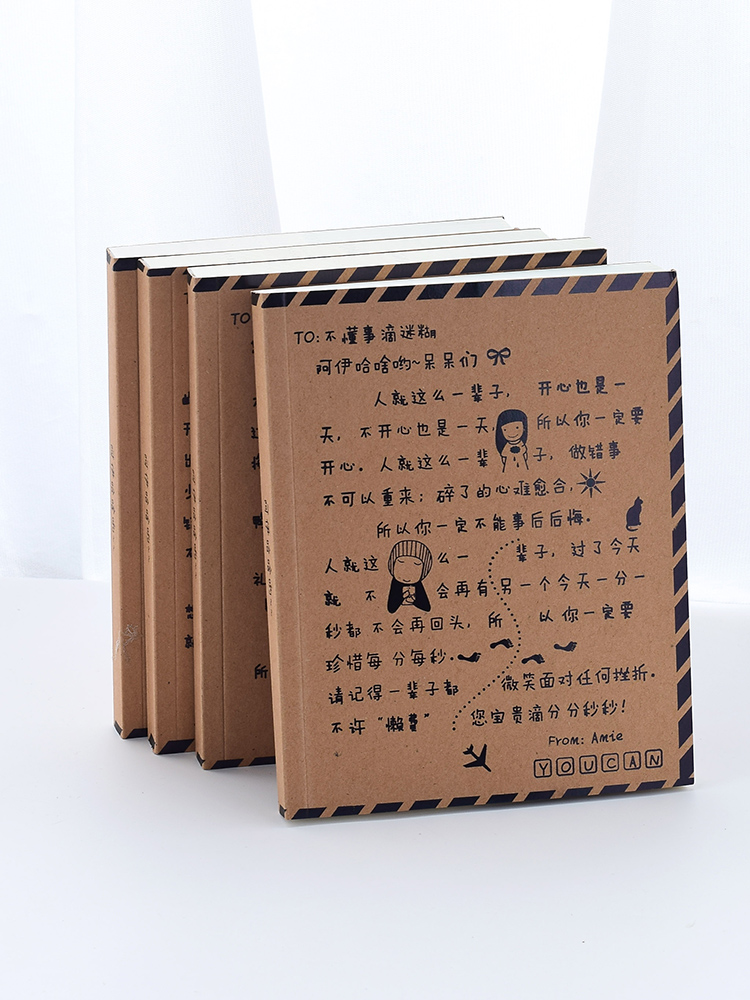 TO: 不懂事滴迷糊
阿伊哈啥哟~呆呆们
人就这么一辈子, 开心也是一
天, 不开心也是一天, 所以你一定要
开心。人就这么一辈子, 做错事
不可以重来; 碎了的心难愈合,
所以你一定不能事后后悔。
人就这么一辈子, 过了今天
就不会再有另一个今天一分一
秒都不会再回头, 所以你一定要
珍惜每分每秒.
请记得一辈子都微笑面对任何挫折.
不许“懒惫”您宝贵滴分分秒秒!
From: Amie
YOUCAN
TO
所
礼